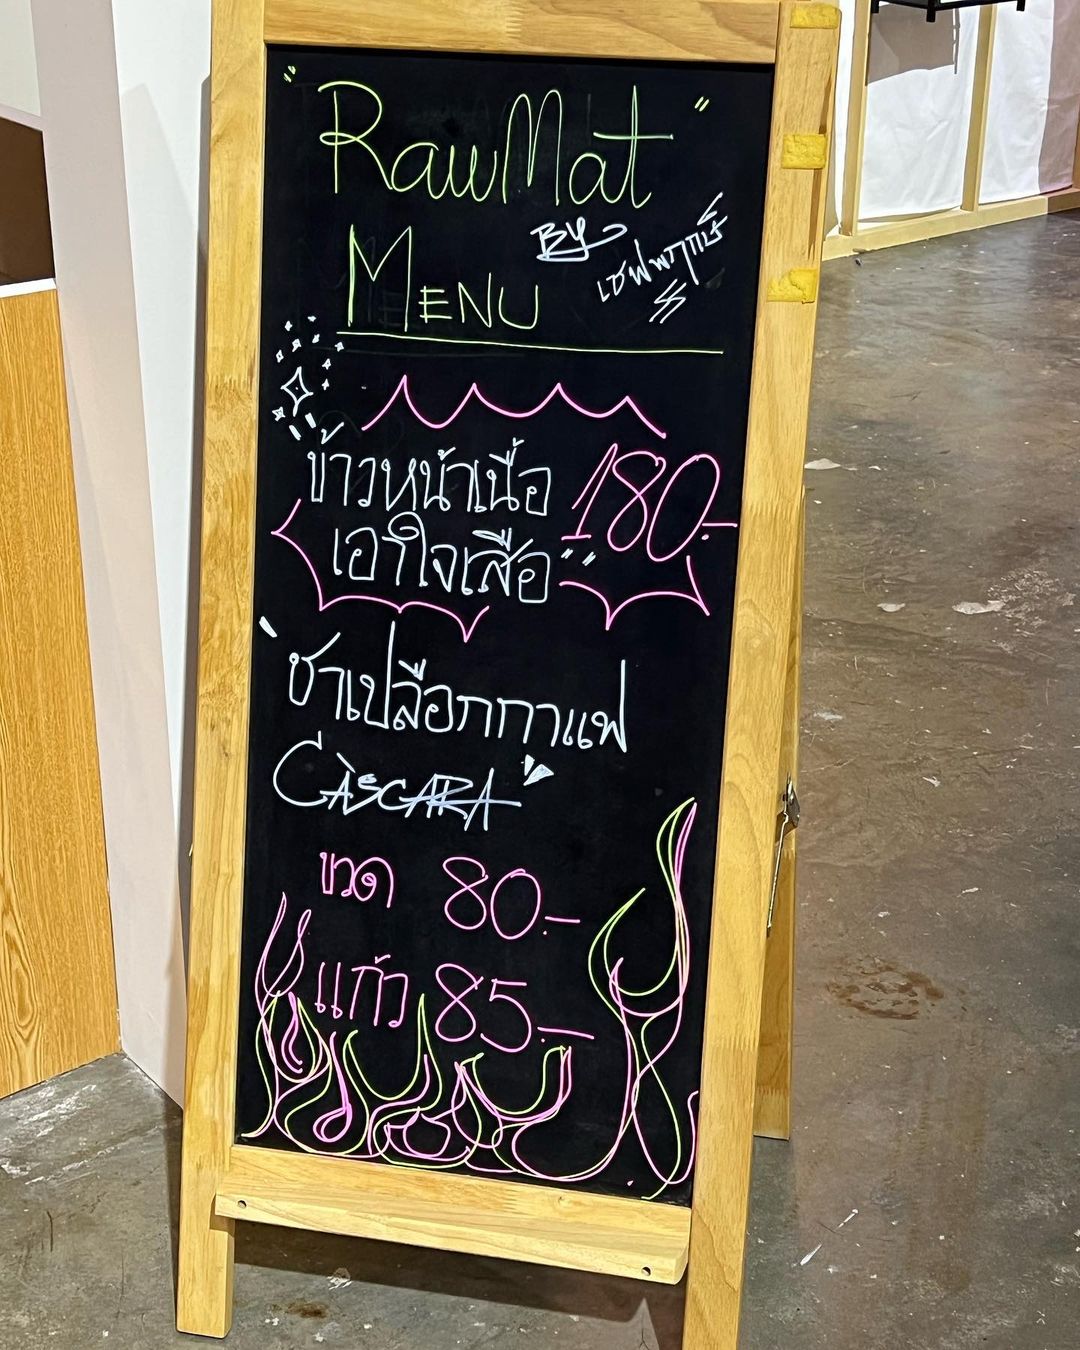 "RawMat"
MENU
BY เชฟพฤกษ์
ข้าวหน้าเนื้อ 180.-
เอาใจเสือ
ชาเปลือกกาแฟ
CÀSCARA
ขวด 80.-
แก้ว 85.-